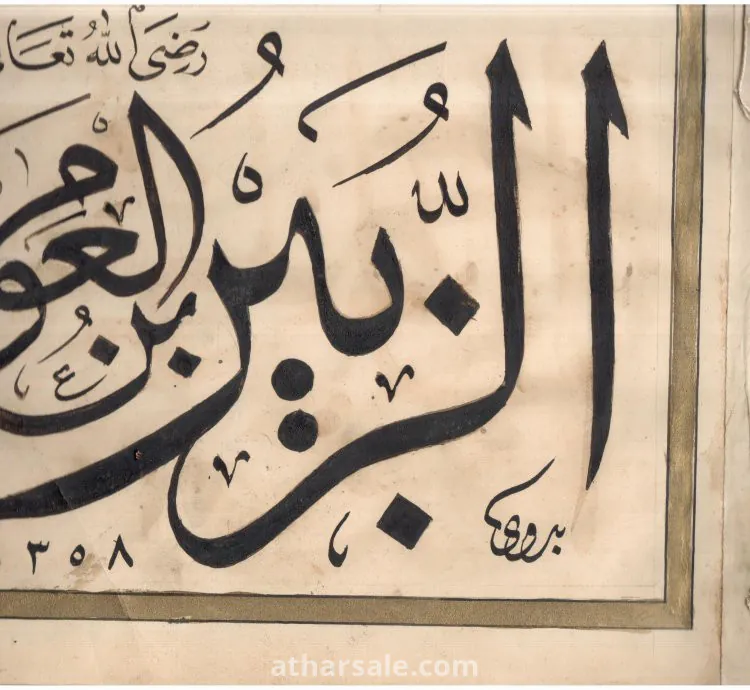 رضي الله تعا
الزبير بن العوام
بدوي
٣٥٨
atharsale.com